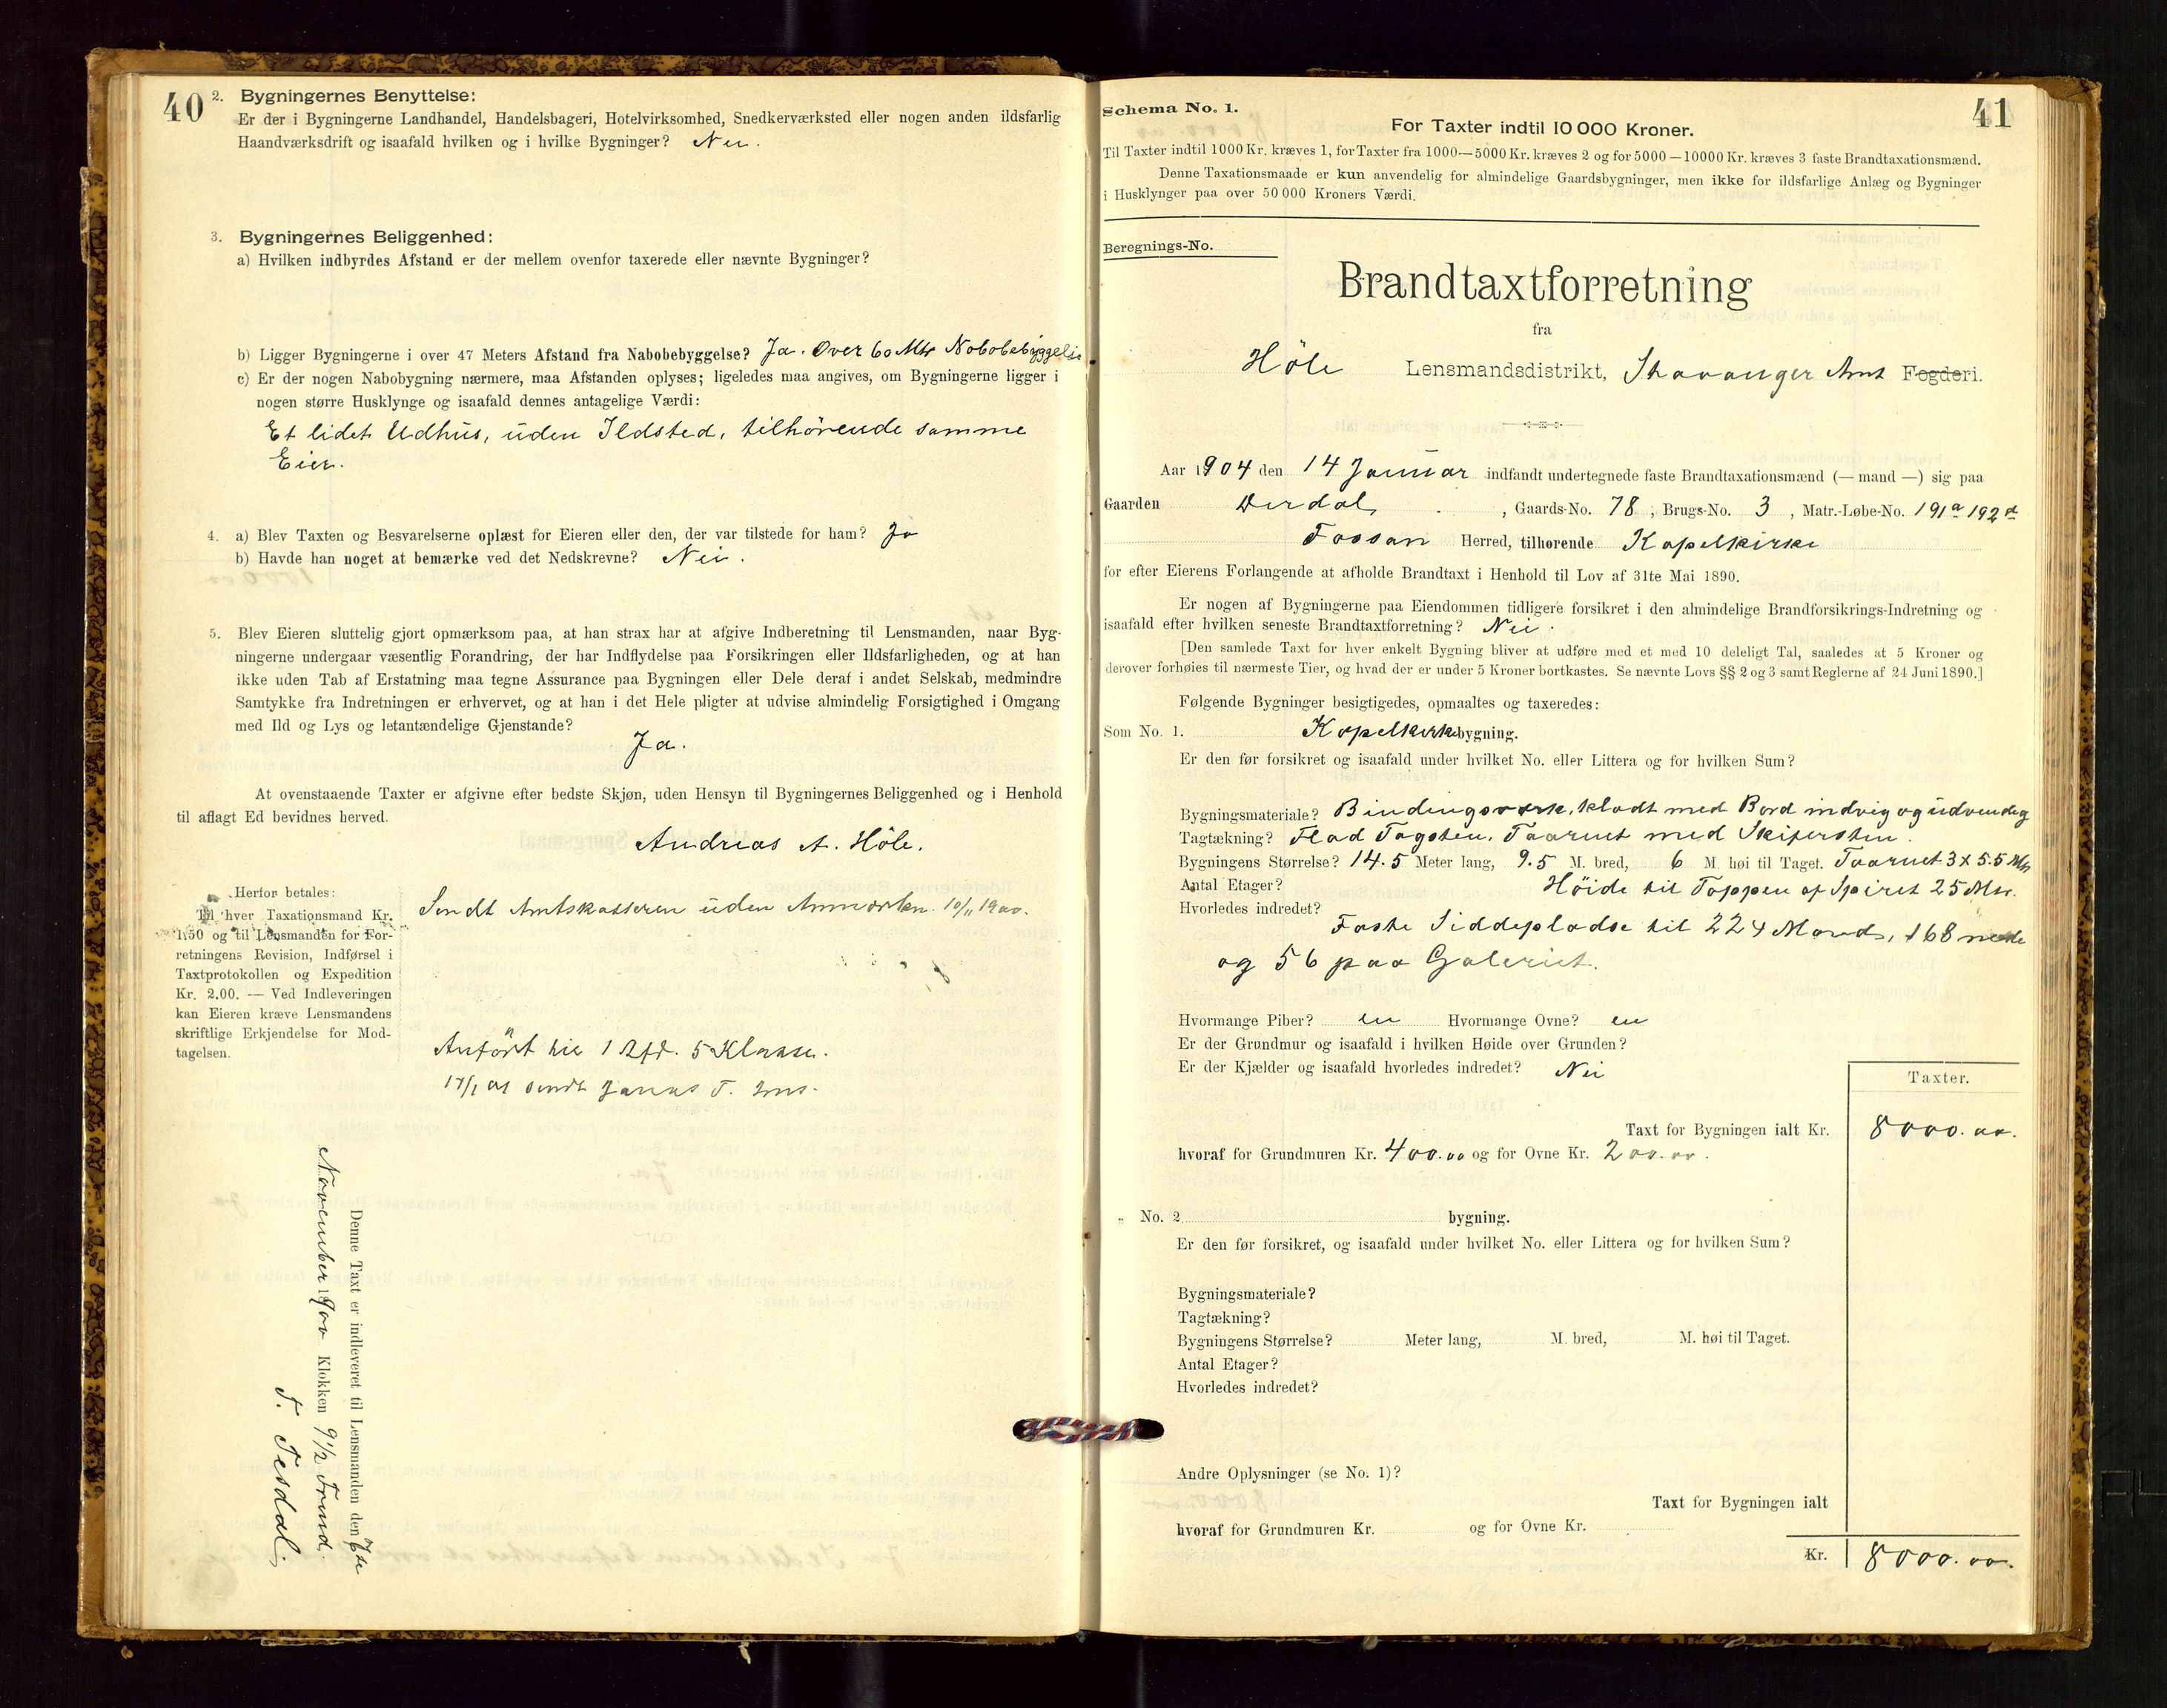 40
2. Bygningernes Benyttelse:
Er der i Bygningerne Landhandel, Handelsbageri, Hotelvirksomhed, Snedkerværksted eller nogen anden ildsfarlig
Haandværksdrift og isaafald hvilken og i hvilke Bygninger? Nei.
3. Bygningernes Beliggenhed:
a) Hvilken indbyrdes Afstand er der mellem ovenfor taxerede eller nævnte Bygninger?
b) Ligger Bygningerne i over 47 Meters Afstand fra Nabobebyggelse? Ja. Over 60 Mtr Nabobebyggelse
c) Er der nogen Nabobygning nærmere, maa Afstanden oplyses; ligeledes maa angives, om Bygningerne ligger i
nogen større Husklynge og isaafald dennes antagelige Værdi:
Et lidet Udhus, uden Ildsted, tilhörende samme
Eier.
4. a) Blev Taxten og Besvarelserne oplæst for Eieren eller den, der var tilstede for ham? Ja
b) Havde han noget at bemærke ved det Nedskrevne? Nei.
5. Blev Eieren sluttelig gjort opmærksom paa, at han strax har at afgive Indberetning til Lensmanden, naar Byg-
ningerne undergaar væsentlig Forandring, der har Indflydelse paa Forsikringen eller Ildsfarligheden, og at han
ikke uden Tab af Erstatning maa tegne Assurance paa Bygningen eller Dele deraf i andet Selskab, medmindre
Samtykke fra Indretningen er erhvervet, og at han i det Hele pligter at udvise almindelig Forsigtighed i Omgang
med Ild og Lys og letantændelige Gjenstande?
Ja.
At ovenstaaende Taxter er afgivne efter bedste Skjøn, uden Hensyn til Bygningernes Beliggenhed og i Henhold
til aflagt Ed bevidnes herved.
Andreas A. Höle.
Herfor betales:
Til hver Taxationsmand Kr.
1.50 og til Lensmanden for For-
retningens Revision, Indførsel i
Taxtprotokollen og Expedition
Kr. 2.00. — Ved Indleveringen
kan Eieren kræve Lensmandens
skriftlige Erkjendelse for Mod-
tagelsen.
Sendt Amtskasseren uden Anmærkn. 10/11 1900.
Anfört til 1 Afd. 5 Klasse.
17/1 01 sendt Jonas T.
Denne Taxt er indleveret til Lensmanden den 7de
November 1900 Klokken 9 1/2 Formd.
T. Tesdal.
41
Schema No. 1.
For Taxter indtil 10 000 Kroner.
Til Taxter indtil 1000 Kr. kræves 1, for Taxter fra 1000—5000 Kr. kræves 2 og for 5000—10000 Kr. kræves 3 faste Brandtaxationsmænd.
Denne Taxationsmaade er kun anvendelig for almindelige Gaardsbygninger, men ikke for ildsfarlige Anlæg og Bygninger
i Husklynger paa over 50 000 Kroners Værdi.
Beregnings-No.
Brandtaxtforretning
fra
Höle Lensmandsdistrikt, Stavanger Amt Fogderi.
Aar 1904 den 14 Januar indfandt undertegnede faste Brandtaxationsmænd (— mand —) sig paa
Gaarden Dirdal, Gaards-No. 78, Brugs-No. 3, Matr.-Løbe-No. 191a 192d
Fossan Herred, tilhørende Kapelkirke
for efter Eierens Forlangende at afholde Brandtaxt i Henhold til Lov af 31te Mai 1890.
Er nogen af Bygningerne paa Eiendommen tidligere forsikret i den almindelige Brandforsikrings-Indretning og
isaafald efter hvilken seneste Brandtaxtforretning? Nei.
[Den samlede Taxt for hver enkelt Bygning bliver at udføre med et med 10 deleligt Tal, saaledes at 5 Kroner og
derover forhøies til nærmeste Tier, og hvad der er under 5 Kroner bortkastes. Se nævnte Lovs §§ 2 og 3 samt Reglerne af 24 Juni 1890.]
Følgende Bygninger besigtigedes, opmaaltes og taxeredes:
Som No. 1. Kapelkirkebygning.
Er den før forsikret og isaafald under hvilket No. eller Littera og for hvilken Sum?
Bygningsmateriale? Bindingsværk, klædt med Bord indvig og udvendig
Tagtækning? Flad Tagsten. Taarnet med Skifersten.
Bygningens Størrelse? 14.5 Meter lang, 9.5 M. bred, 6 M. høi til Taget. Taarnet 3 x 5.5 Mtr
Antal Etager? Höide til Toppen af Spiret 25 Mtr.
Hvorledes indredet?
Faste Siddepladse til 224 Mand, 168 nede
og 56 paa Galeriet.
Hvormange Piber? en Hvormange Ovne? en
Er der Grundmur og isaafald i hvilken Høide over Grunden?
Er der Kjælder og isaafald hvorledes indredet? Nei
Taxter.
Taxt for Bygningen ialt Kr. 8000.00.
hvoraf for Grundmuren Kr. 400.00 og for Ovne Kr. 200.00.
„ No. 2 bygning.
Er den før forsikret, og isaafald under hvilket No. eller Littera og for hvilken Sum?
Bygningsmateriale?
Tagtækning?
Bygningens Størrelse? Meter lang, M. bred, M. høi til Taget.
Antal Etager?
Hvorledes indredet?
Andre Oplysninger (se No. 1)?
Taxt for Bygningen ialt
hvoraf for Grundmuren Kr. og for Ovne Kr.
Kr. 8000.00.